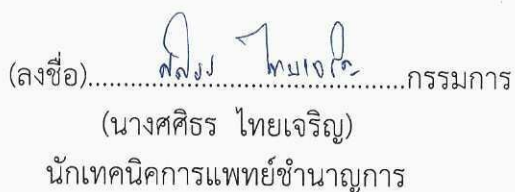 (ลงชื่อ)........ศศิธร ไทยเจริญ........กรรมการ
(นางศศิธร ไทยเจริญ)
นักเทคนิคการแพทย์ชำนาญการ